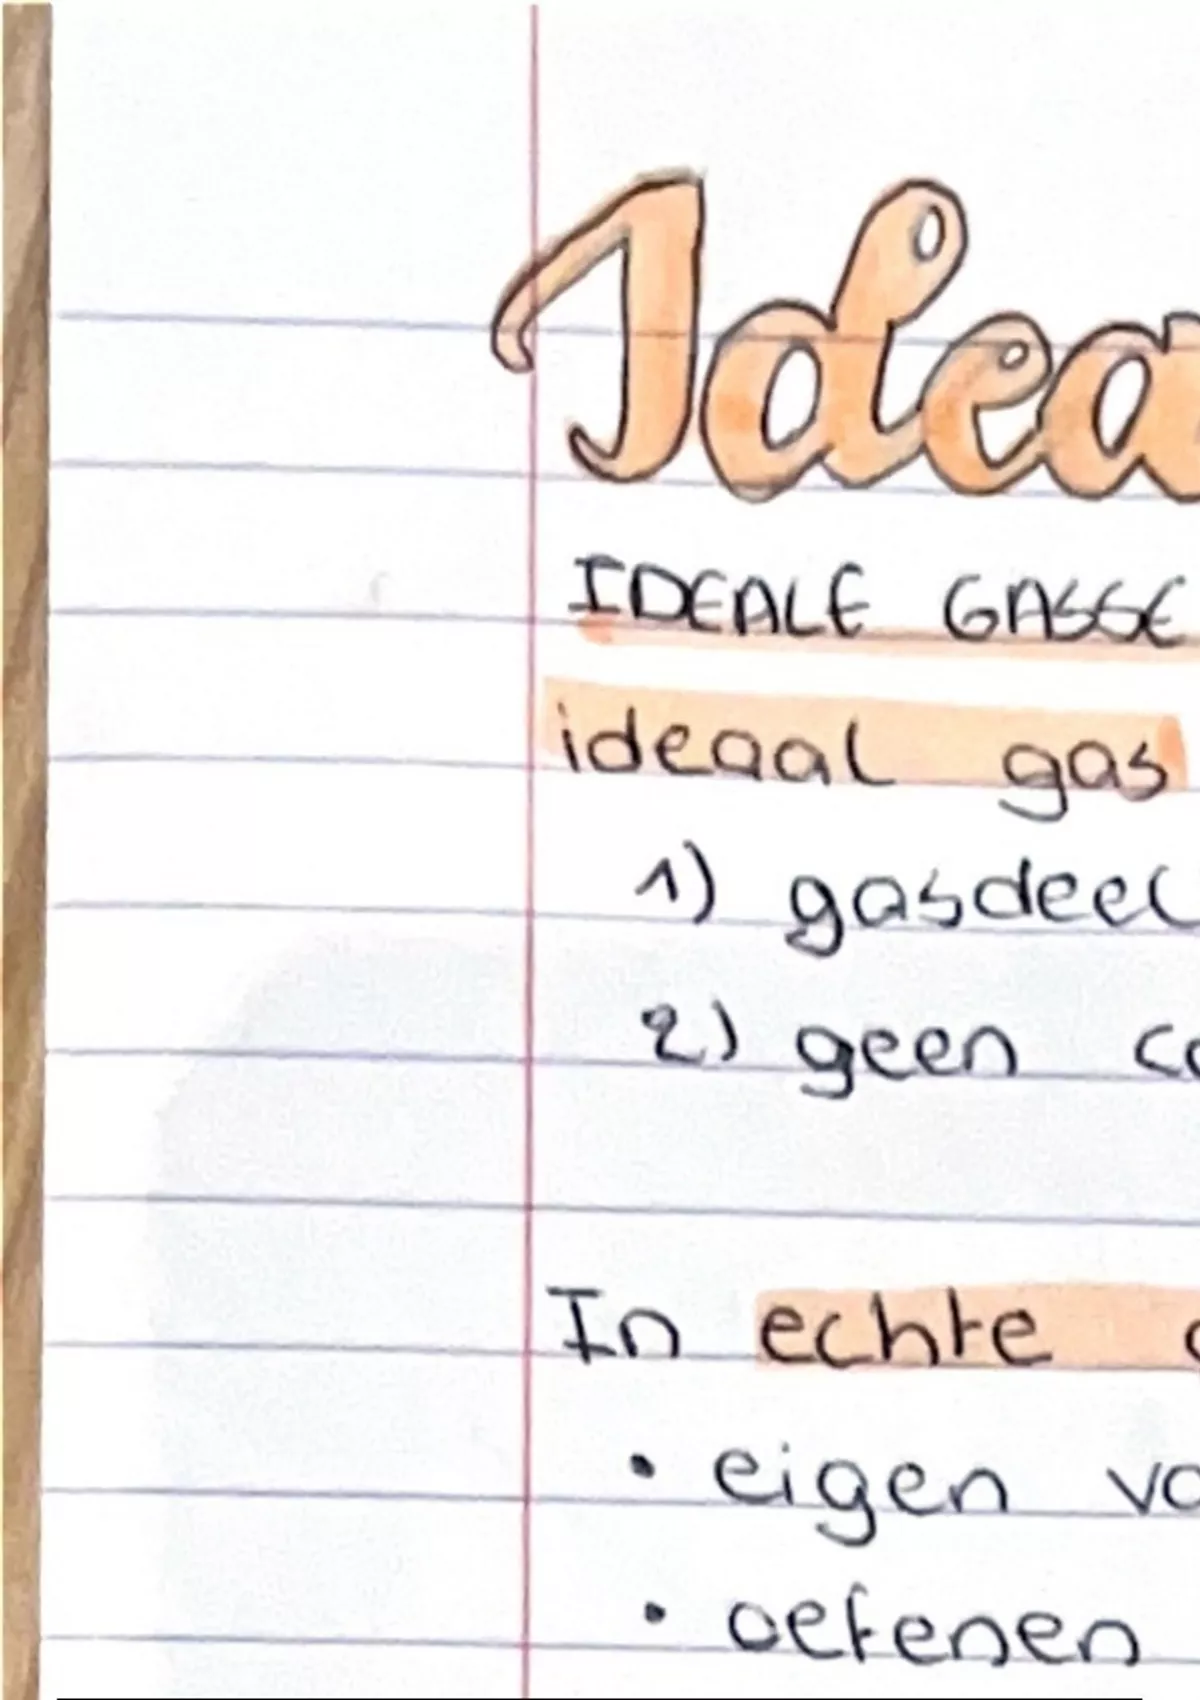 Idea
IDEALE GASSE
ideaal gas
1) gasdeel
2) geen co
In echte g
• eigen vo
• oefenen